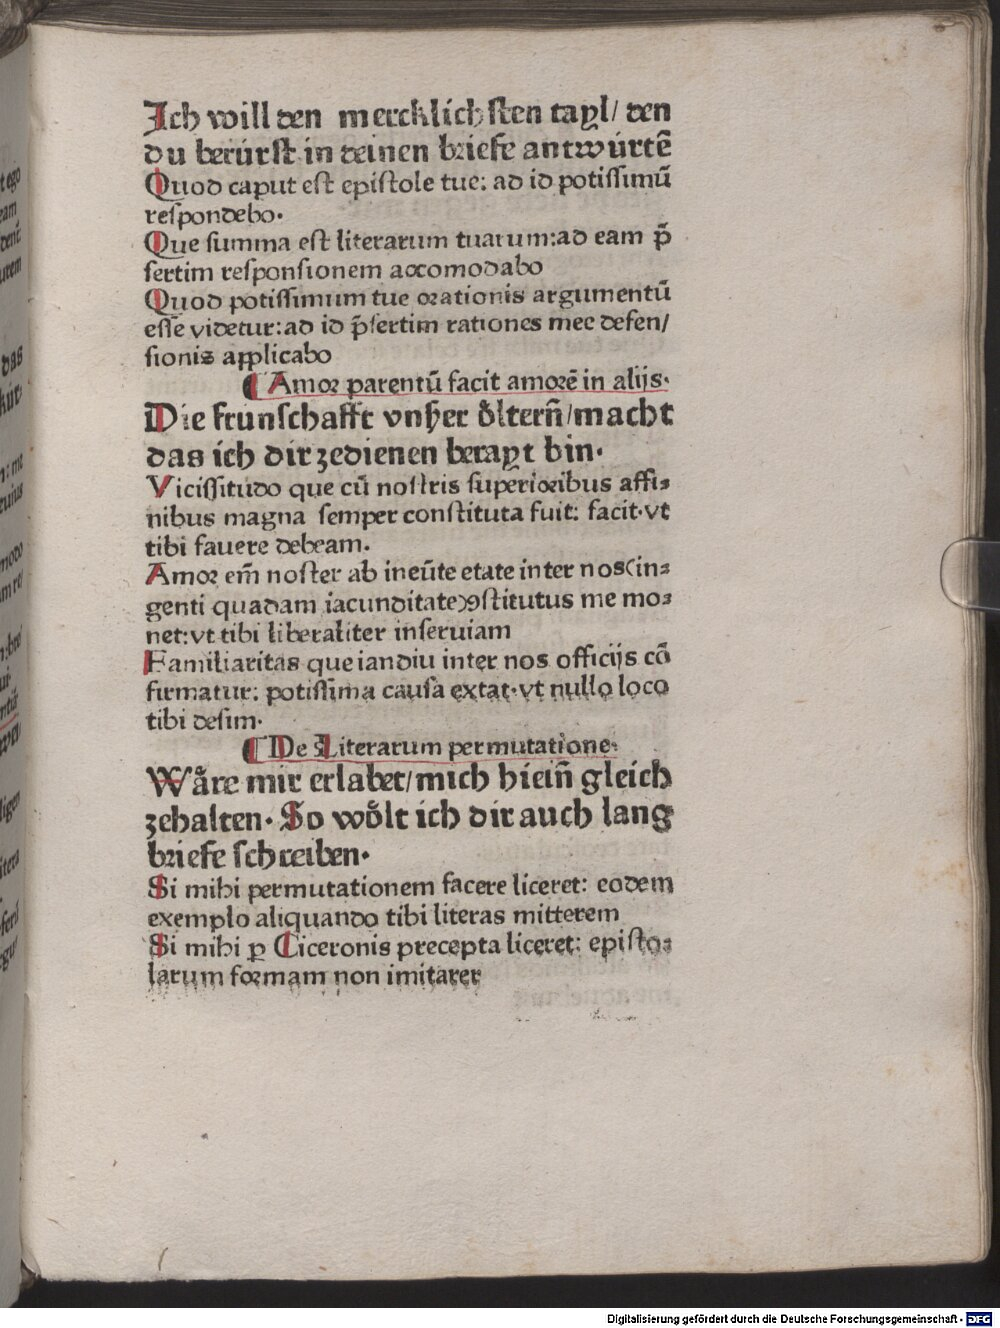 Ich will den mercklichsten tayl/ den
du berürst in deinen briefe antwürtē
Quod caput est epistole tue: ad id potissimū
respondebo.
Que summa est literarum tuarum:ad eam p̄
sertim responsionem accomodabo
Quod potissimum tue orationis argumentū
esse videtur:ad id p̄sertim rationes mee defen/
sionis applicabo
¶ Amor parentū facit amorē in alijs.
Die frunschafft vnßer oͤlterñ/macht
das ich dir zedienen berayt bin.
Vicissitudo que cū nostris superioribus affi⸗
nibus magna semper constituta fuit: facit.vt
tibi fauere debeam.
Amor em̄ noster ab ineūte etate inter nos(in⸗
genti quadam iacunditate)ꝯstitutus me mo⸗
net:vt tibi liberaliter inseruiam
Familiaritas que iandiu inter nos officijs cō
firmatur: potissima causa extat.vt nullo loco
tibi desim.
¶ De Literarum permutatione.
Waͤre mir erlabet/mich hieiñ gleich
zehalten. So woͤlt ich dir auch lang
briefe schreiben.
Si mihi permutationem facere liceret: eodem
exemplo aliquando tibi literas mitterem
Si mihi ꝑ Ciceronis precepta liceret: episto⸗
larum formam non imitarer
Digitalisierung gefördert durch die Deutsche Forschungsgemeinschaft - DFG